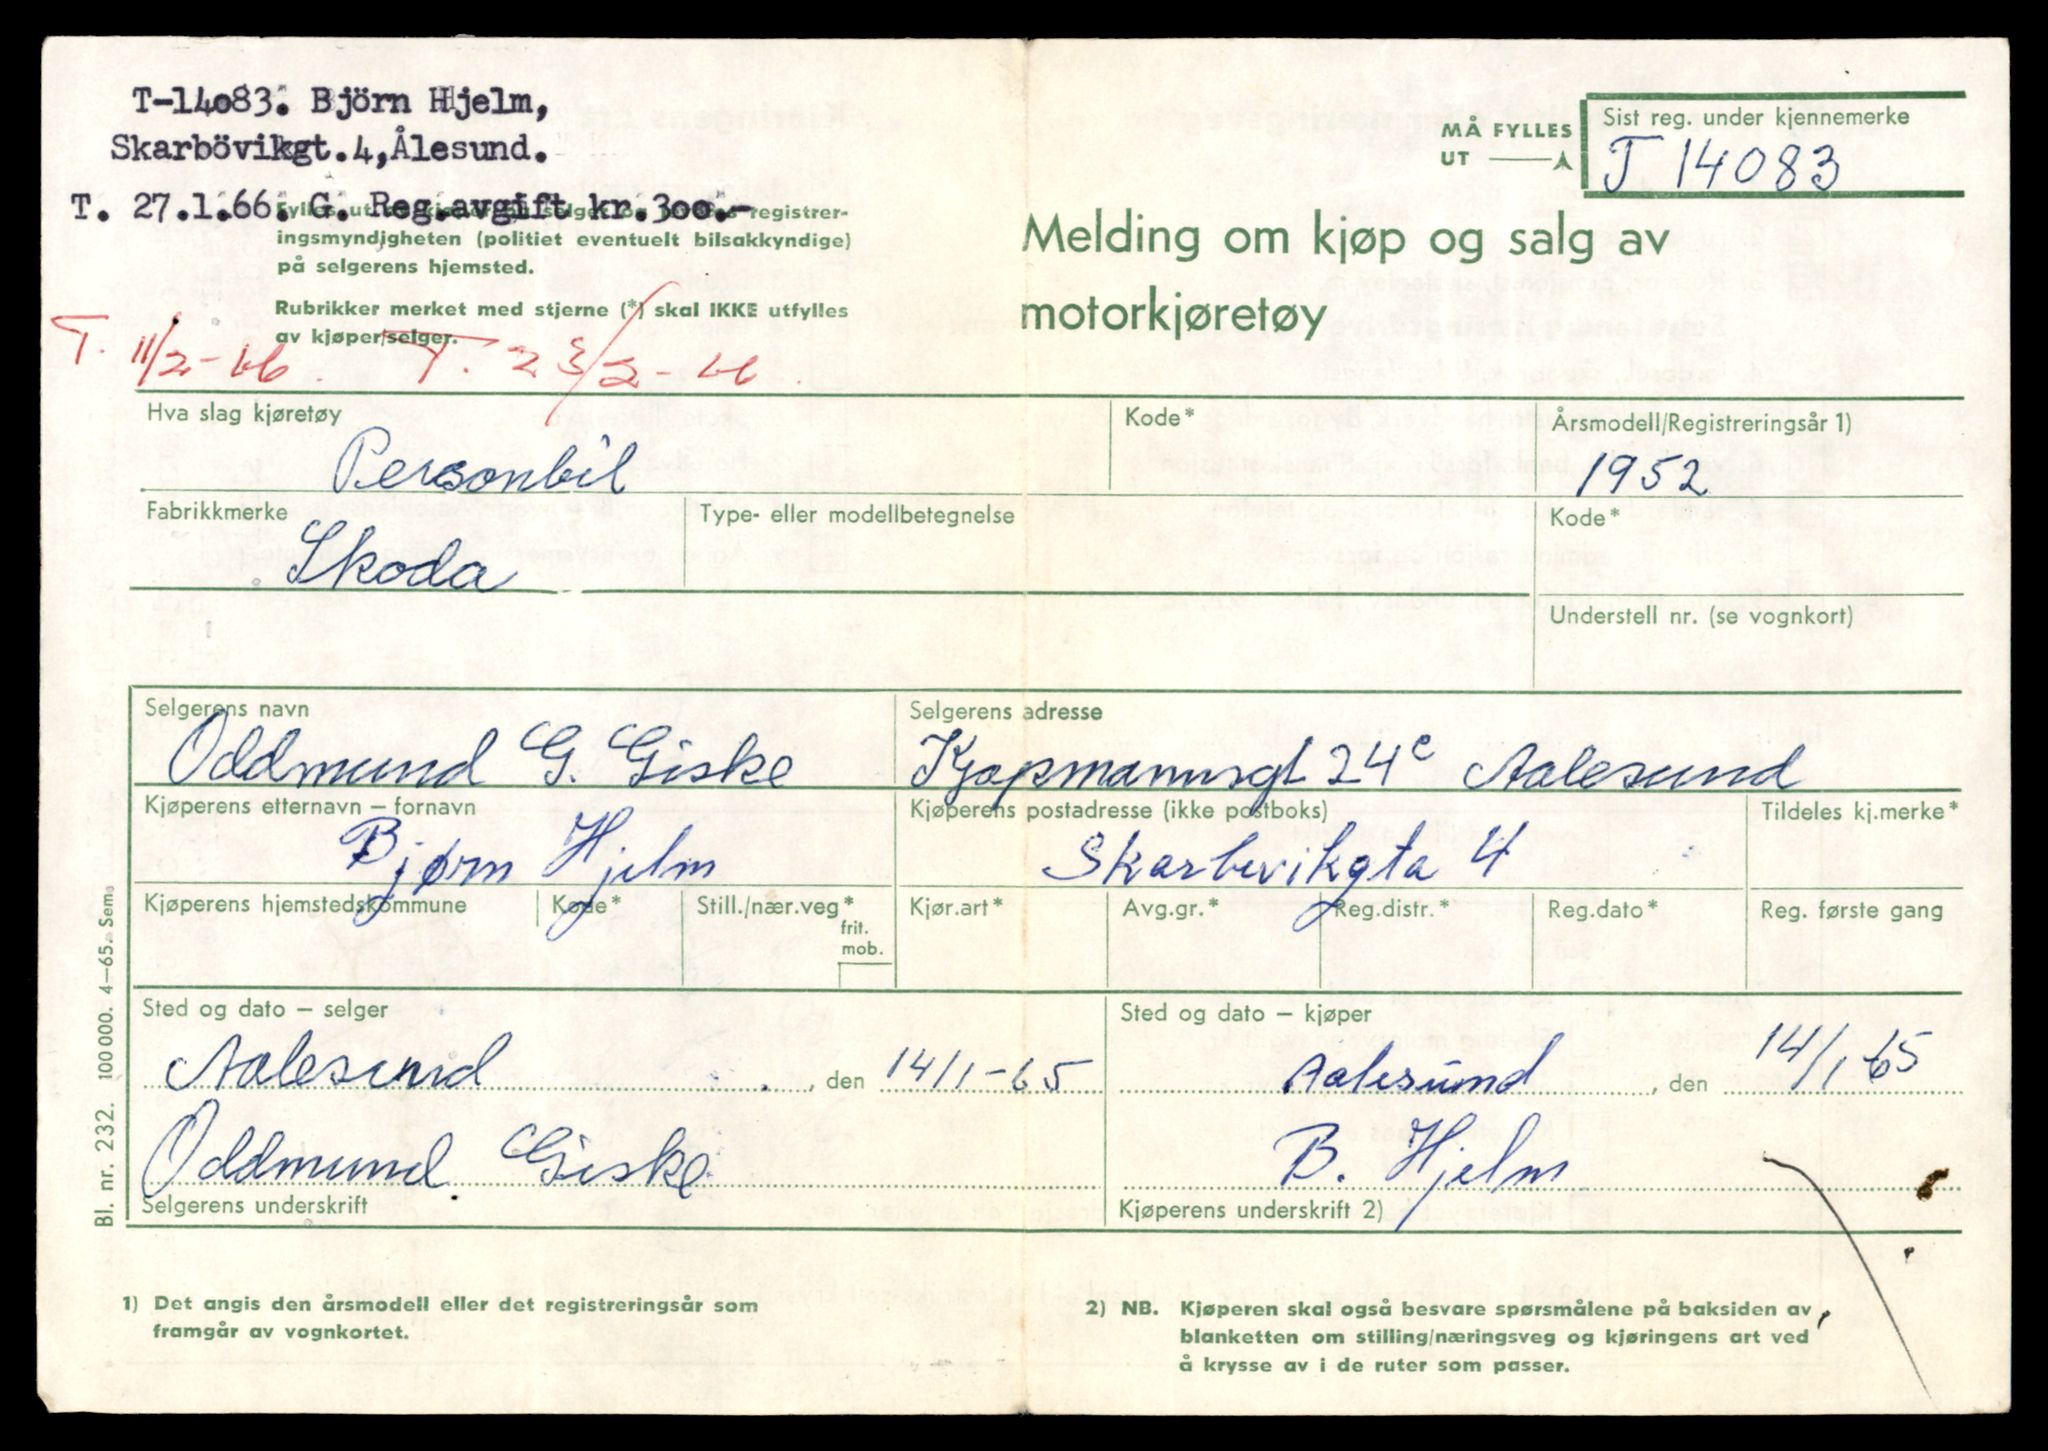 T-14083. Björn Hjelm,
Skarbövikgt.4,Ålesund.
T. 27.1.66. G. Reg.avgift kr.300.-
Fylles ut registrer-
ingsmyndigheten (politiet eventuelt bilsakkyndige)
på selgerens hjemsted.
Rubrikker merket med stjerne (*) skal IKKE utfylles
av kjøper/selger.
T. 11/2-66. T. 23/2-66.
MÅ FYLLES
UT
Sist reg. under kjennemerke
T 14083
Melding om kjøp og salg av
motorkjøretøy
Hva slag kjøretøy
Personbil
Kode*
Årsmodell/Registreringsår 1)
1952
Fabrikkmerke
Skoda
Type- eller modellbetegnelse
Kode*
Understell nr. (se vognkort)
Selgerens navn
Oddmund G. Giske
Selgerens adresse
Kjøpmannsgt 24c Aalesund
Kjøperens etternavn – fornavn
Bjørn Hjelm
Kjøperens postadresse (ikke postboks)
Skarbevikgta 4
Tildeles kj.merke*
Kjøperens hjemstedskommune
Kode*
Still./nær.veg*
frit.
mob.
Kjør.art*
Avg.gr.*
Reg.distr.*
Reg.dato*
Reg. første gang
Sted og dato – selger
Aalesund, den 14/1-65
Oddmund Giske
Selgerens underskrift
Sted og dato – kjøper
Aalesund, den 14/1-65
B. Hjelm
Kjøperens underskrift 2)
Bl. nr. 232. 100 000. 4–65. Sem.
1) Det angis den årsmodell eller det registreringsår som
framgår av vognkortet.
2) NB. Kjøperen skal også besvare spørsmålene på baksiden av
blanketten om stilling/næringsveg og kjøringens art ved
å krysse av i de ruter som passer.